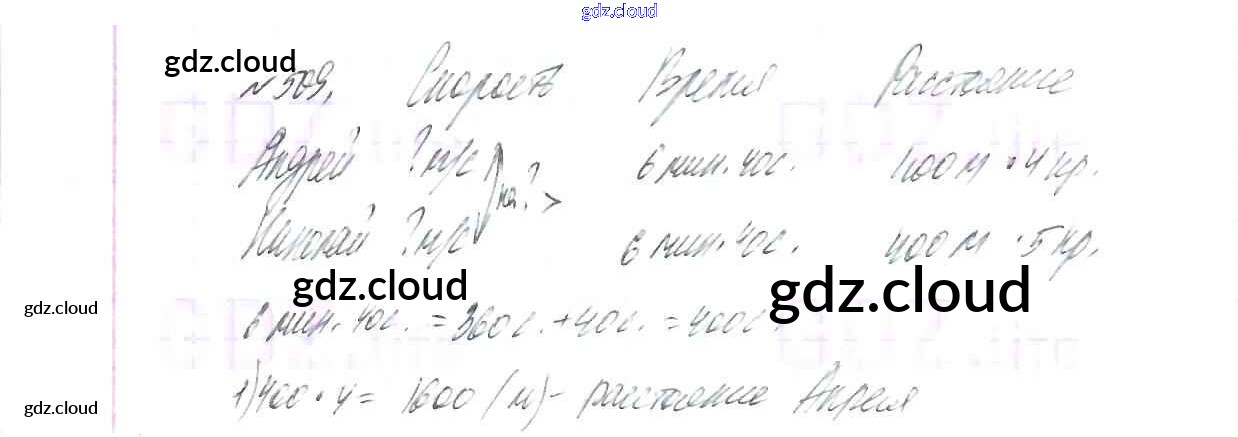 gdz.cloud
gdz.cloud
№ 509. Скорость Время Расстояние
Андрей ? м/с 6 мин. 40с. 400 м • 4 кр.
на ? >
Николай ? м/с 6 мин. 40с. 400 м • 5 кр.
gdz.cloud gdz.cloud
gdz.cloud
6 мин. 40с. = 360 с. + 40с. = 400с.
1) 400 • 4 = 1600 (м) - расстояние Андрея
gdz.cloud